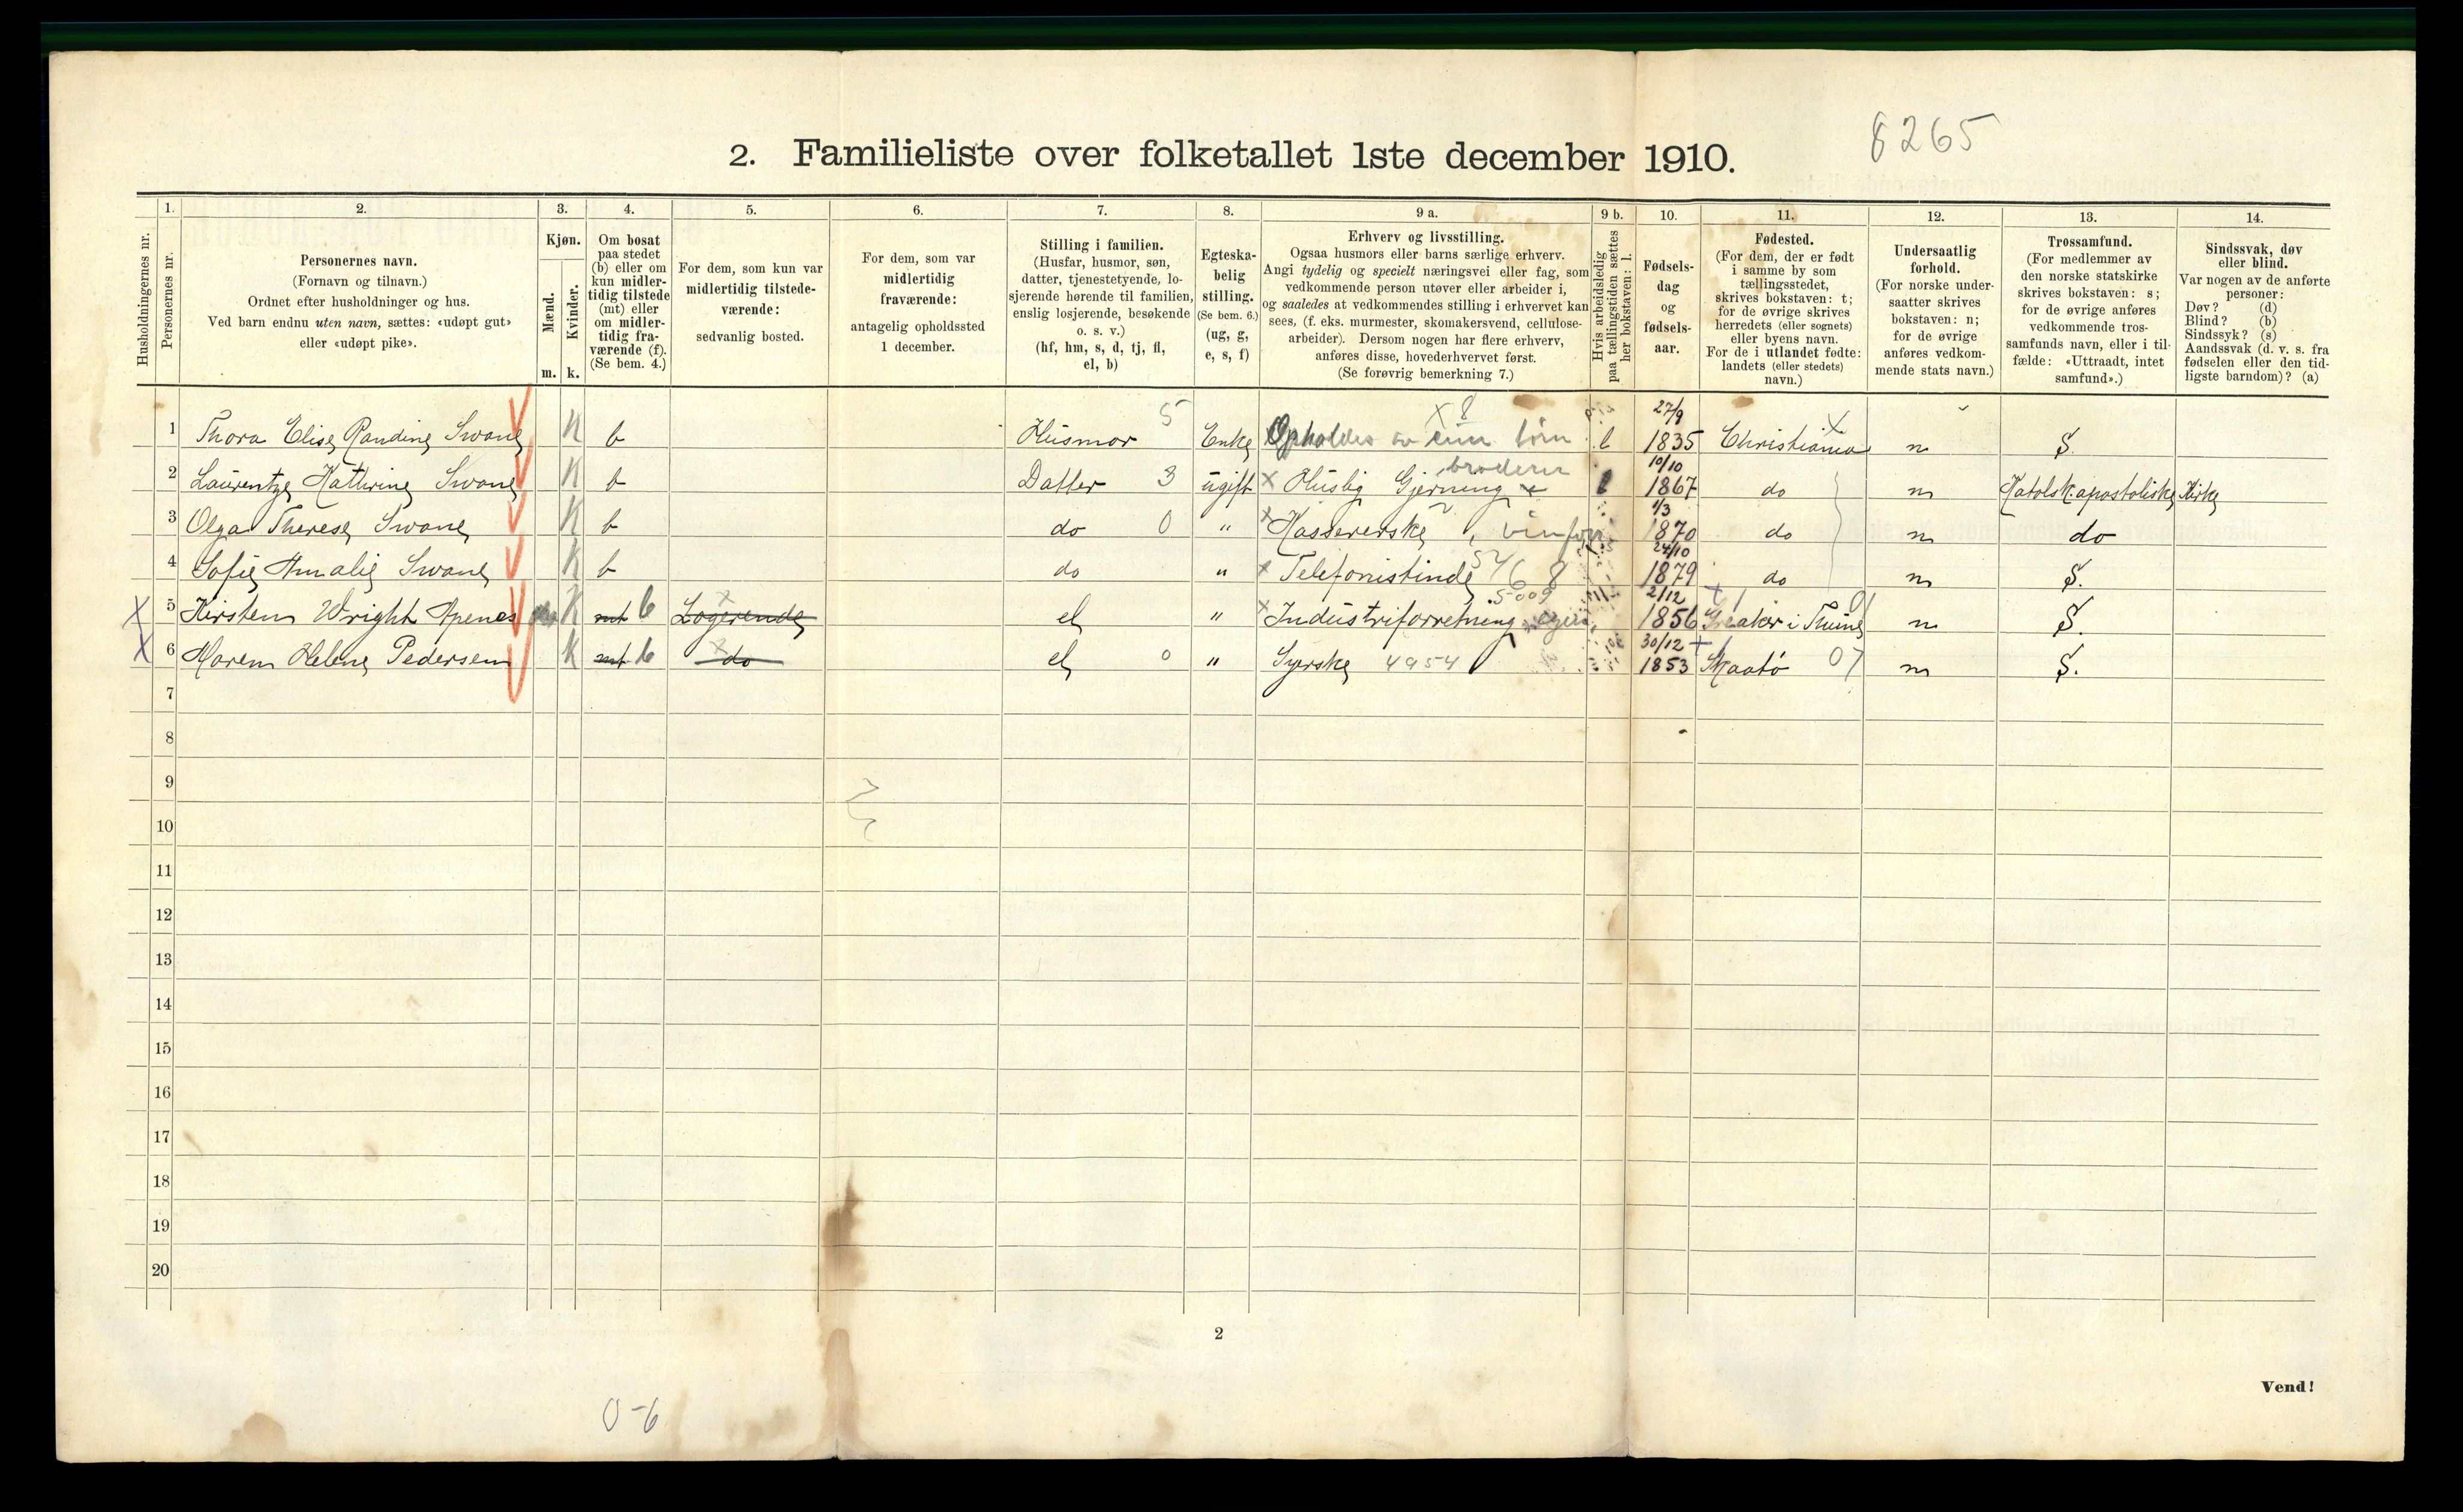 8265
2. Familieliste over folketallet 1ste december 1910.
Husholdningernes nr.
1. Personernes nr.
2. Personernes navn.
(Fornavn og tilnavn.)
Ordnet efter husholdninger og hus.
Ved barn endnu uten navn, sættes: «udøpt gut»
eller «udøpt pike».
3. Kjøn.
Mænd. m.
Kvinder. k.
4. Om bosat
paa stedet
(b) eller om
kun midler-
tidig tilstede
(mt) eller
om midler-
tidig fra-
værende (f).
(Se bem. 4.)
5. For dem, som kun var
midlertidig tilstede-
værende:
sedvanlig bosted.
6. For dem, som var
midlertidig
fraværende:
antagelig opholdssted
1 december.
7. Stilling i familien.
(Husfar, husmor, søn,
datter, tjenestetyende, lo-
sjerende hørende til familien,
enslig losjerende, besøkende
o. s. v.)
(hf, hm, s, d, tj, fl,
el, b)
8. Egteska-
belig
stilling.
(Se bem. 6.)
(ug, g,
e, s, f)
9 a. Erhverv og livsstilling.
Ogsaa husmors eller barns særlige erhverv.
Angi tydelig og specielt næringsvei eller fag, som
vedkommende person utøver eller arbeider i,
og saaledes at vedkommendes stilling i erhvervet kan
sees, (f. eks. murmester, skomakersvend, cellulose-
arbeider). Dersom nogen har flere erhverv,
anføres disse, hovederhvervet først.
(Se forøvrig bemerkning 7.)
9 b. Hvis arbeidsledig
paa tællingstiden sættes
her bokstaven: l.
10. Fødsels-
dag
og
fødsels-
aar.
11. Fødested.
(For dem, der er født
i samme by som
tællingsstedet,
skrives bokstaven: t;
for de øvrige skrives
herredets (eller sognets)
eller byens navn.
For de i utlandet fødte:
landets (eller stedets)
navn.)
12. Undersaatlig
forhold.
(For norske under-
saatter skrives
bokstaven: n;
for de øvrige
anføres vedkom-
mende stats navn.)
13. Trossamfund.
(For medlemmer av
den norske statskirke
skrives bokstaven: s;
for de øvrige anføres
vedkommende tros-
samfunds navn, eller i til-
fælde: «Uttraadt, intet
samfund».)
14. Sindssvak, døv
eller blind.
Var nogen av de anførte
personer:
Døv? (d)
Blind? (b)
Sindssyk? (s)
Aandssvak (d. v. s. fra
fødselen eller den tid-
ligste barndom)? (a)
1 Thora Elise Randine Swane K b Husmor 5 Enke Opholdes av sine børn x 8 l 27/9 1835 Christiania X n S.
2 Laurentze Kathrine Swane K b Datter 3 ugift x Huslig Gjerning broderer 10/10 1867 do n Katolsk apostoliske Kirke
3 Olga Therese Swane K b do 0 " x Kassererske, 1/3 1870 do n do
4 Sofie Amalie Swane K b do " x Telefonistinde 24/10 1879 do n S.
X 5 Kirsten Wright Apenes K mt b Logerende el " x Industriforretning 5009 2/12 1856 Greaker i Thune 01 n S.
X 6 Maren Helene Pedersen K mt b do el 0 " Syerske 4954 30/12 1853 Skaatø 07 n S.
7
8
9
10
11
12
13
14
15
16
17
18
19
20
2
Vend!
0-6